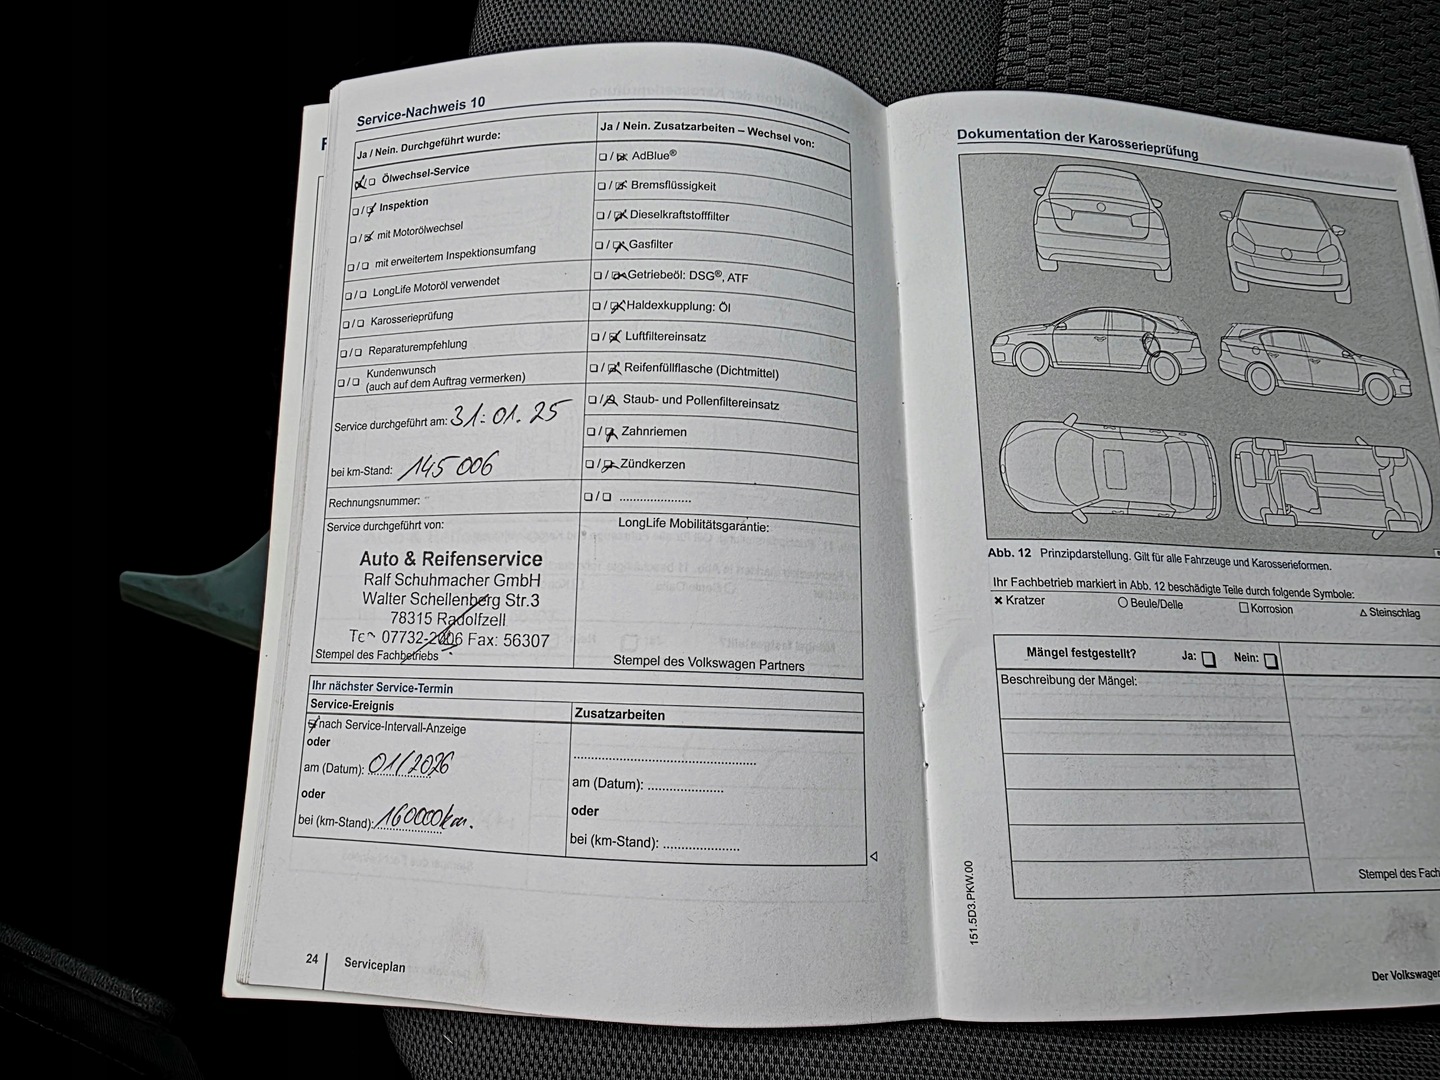 Service-Nachweis 10
Ja / Nein. Durchgeführt wurde:
Ölwechsel-Service
Inspektion
mit Motorölwechsel
mit erweitertem Inspektionsumfang
LongLife Motoröl verwendet
Karosserieprüfung
Reparaturempfehlung
Kundenwunsch
(auch auf dem Auftrag vermerken)
Service durchgeführt am: 31.01.25
bei km-Stand: 145 006
Rechnungsnummer:
Service durchgeführt von:
Auto & Reifenservice
Ralf Schuhmacher GmbH
Walter Schellenberg Str.3
78315 Radolfzell
07732- Fax: 56307
Stempel des Fachbetriebs
Ja / Nein. Zusatzarbeiten – Wechsel von:
AdBlue®
Bremsflüssigkeit
Dieselkraftstofffilter
Gasfilter
Getriebeöl: DSG®, ATF
Haldexkupplung: Öl
Luftfiltereinsatz
Reifenfüllflasche (Dichtmittel)
Staub- und Pollenfiltereinsatz
Zahnriemen
Zündkerzen
LongLife Mobilitätsgarantie:
Stempel des Volkswagen Partners
Ihr nächster Service-Termin
Service-Ereignis
nach Service-Intervall-Anzeige
oder
am (Datum): 01/2026
oder
bei (km-Stand): 160000km.
Zusatzarbeiten
am (Datum):
oder
bei (km-Stand):
24 Serviceplan
Dokumentation der Karosserieprüfung
Abb. 12 Prinzipdarstellung. Gilt für alle Fahrzeuge und Karosserieformen.
Ihr Fachbetrieb markiert in Abb. 12 beschädigte Teile durch folgende Symbole:
Kratzer Beule/Delle Korrosion Steinschlag
Mängel festgestellt? Ja: Nein:
Beschreibung der Mängel:
Stempel des Fach
151.5D3.PKW.00
Der Volkswagen